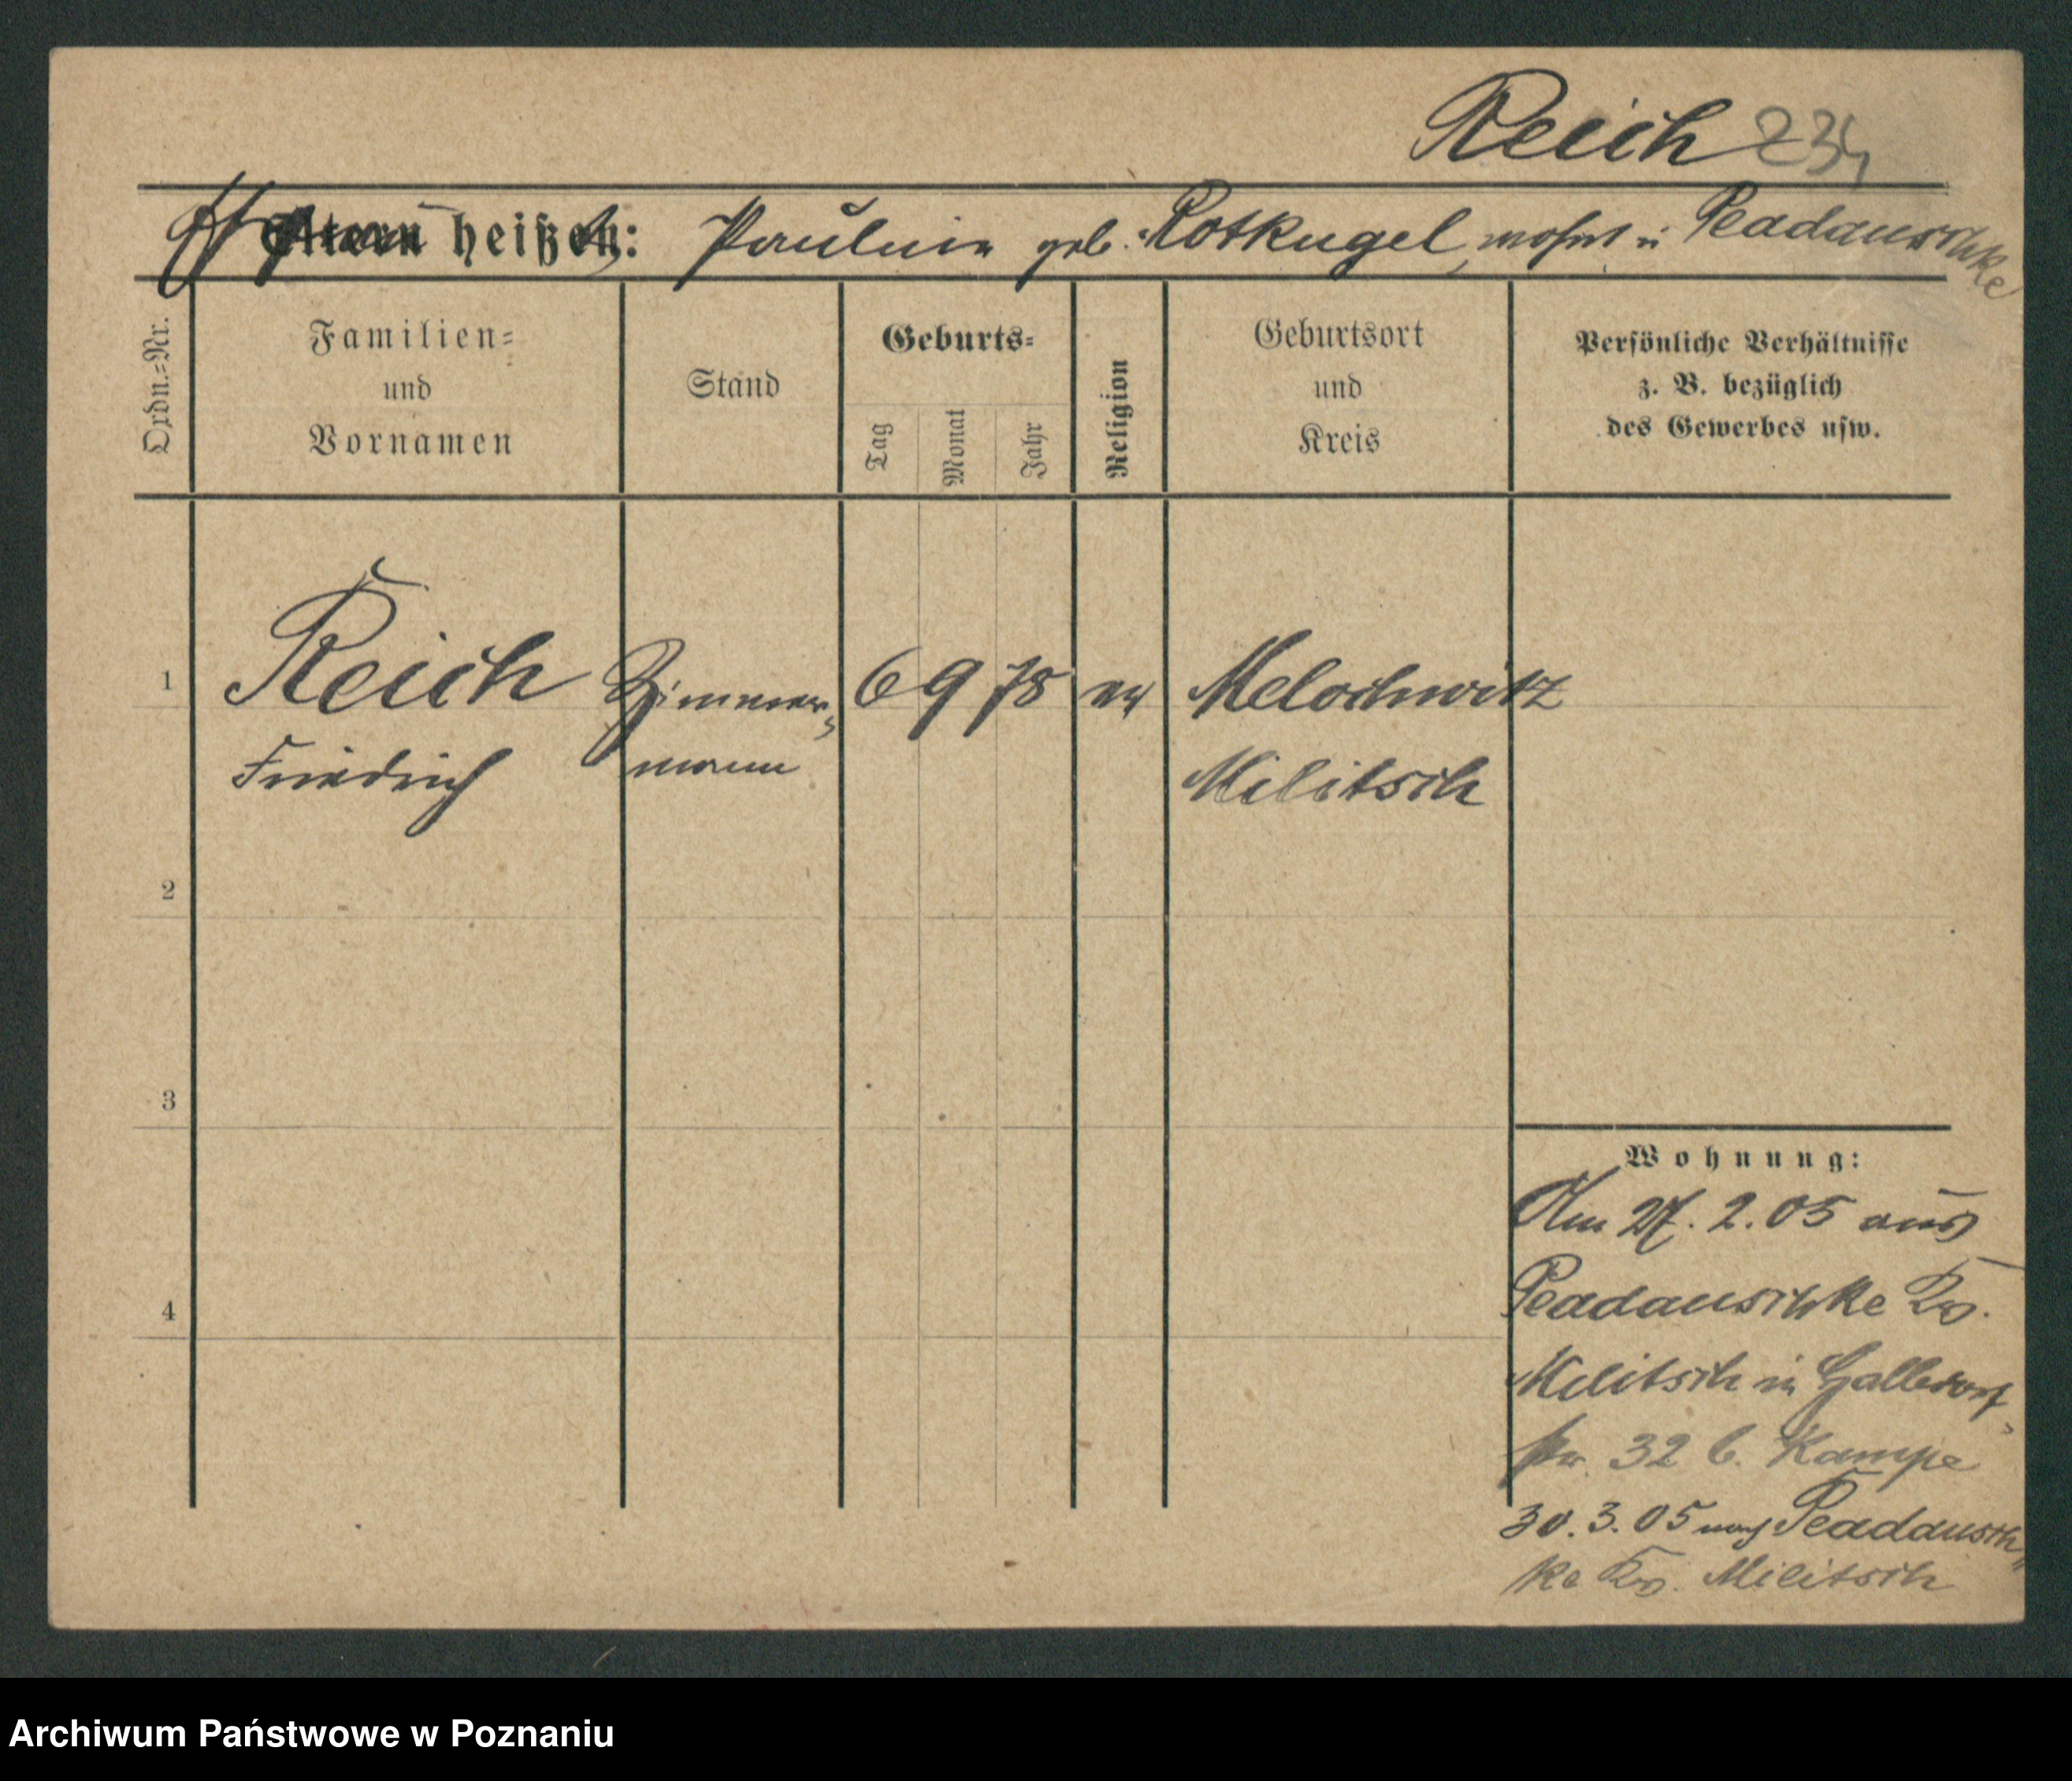 Reich 234
Ehefrau heißt: Pauline geb. Rotkugel, wohnt in Peadauschke
Ordn.=Nr.
Familien=
und
Vornamen
Stand
Geburts=
Tag
Monat
Jahr
Religion
Geburtsort
und
Kreis
Persönliche Verhältnisse
z. B. bezüglich
des Gewerbes usw.
1
Reich Zimmer= 6 9 78 ev Melochwitz
Friedrich mann Militsch
2
3
4
Wohnung:
Am 27. 2. 05 aus
Peadauschke Kr.
Militsch in
32 b. Kampe
30. 3. 05 nach Peadausch=
ke Kr. Militsch
Archiwum Państwowe w Poznaniu